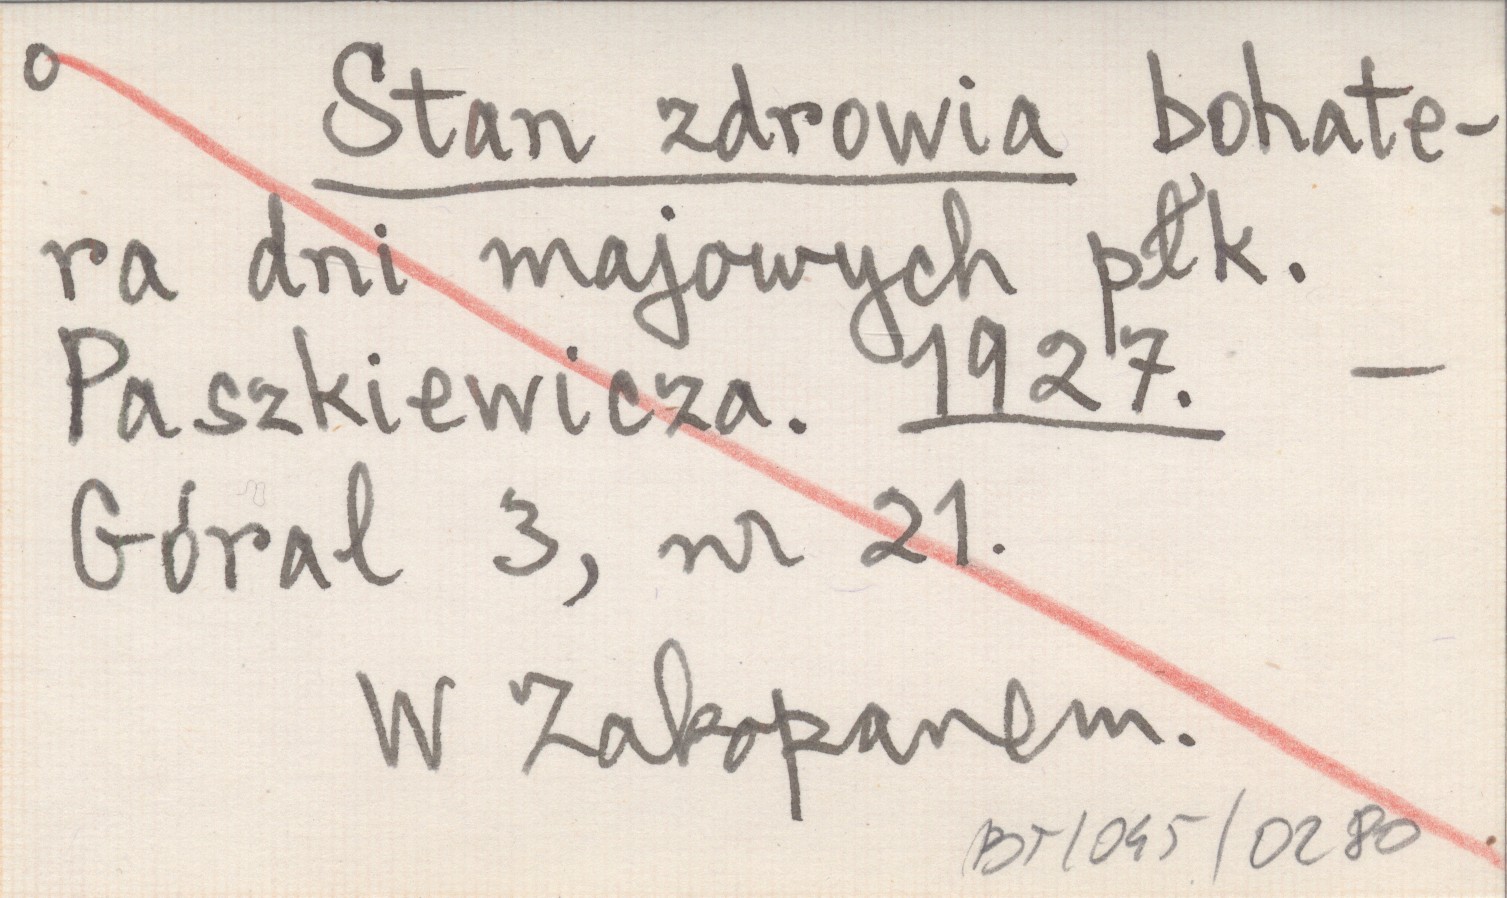 o Stan zdrowia bohate-
ra dni majowych płk.
Paszkiewicza. 1927. —
Góral 3, nr 21.
W Zakopanem.
BT/045/0280